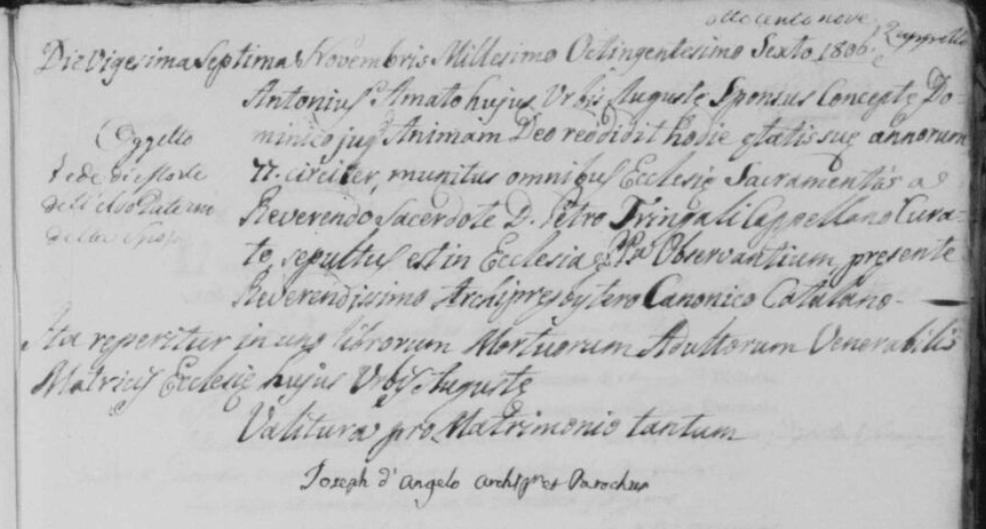 otto cento nove
Die Vigesima Septima Novembris Millesimo Octingentesimo Sexto 1806.
Antonius Amato hujus Urbis Augustę Sponsus Conceptę Do-
minico jug Animam Deo reddidit hodie ętatis suę annorum
77. circiter, munitus omnibus Ecclesię Sacramentis a
Reverendo Sacerdote D. Petro Tringali Cappellano Cura-
to, sepultus est in Ecclesia Observantium, pręsente
Reverendissimo Archipresbytero Canonico Catalano
Oggetto
Fede di Morte
dell'Avo Paterno
della Sposa
Ita reperitur in uno librorum Mortuorum Adultorum Venerabilis
Matricis Ecclesię hujus Urbis Augustę
Valitura pro Matrimonio tantum
Joseph d'Angelo Archipres Parochus